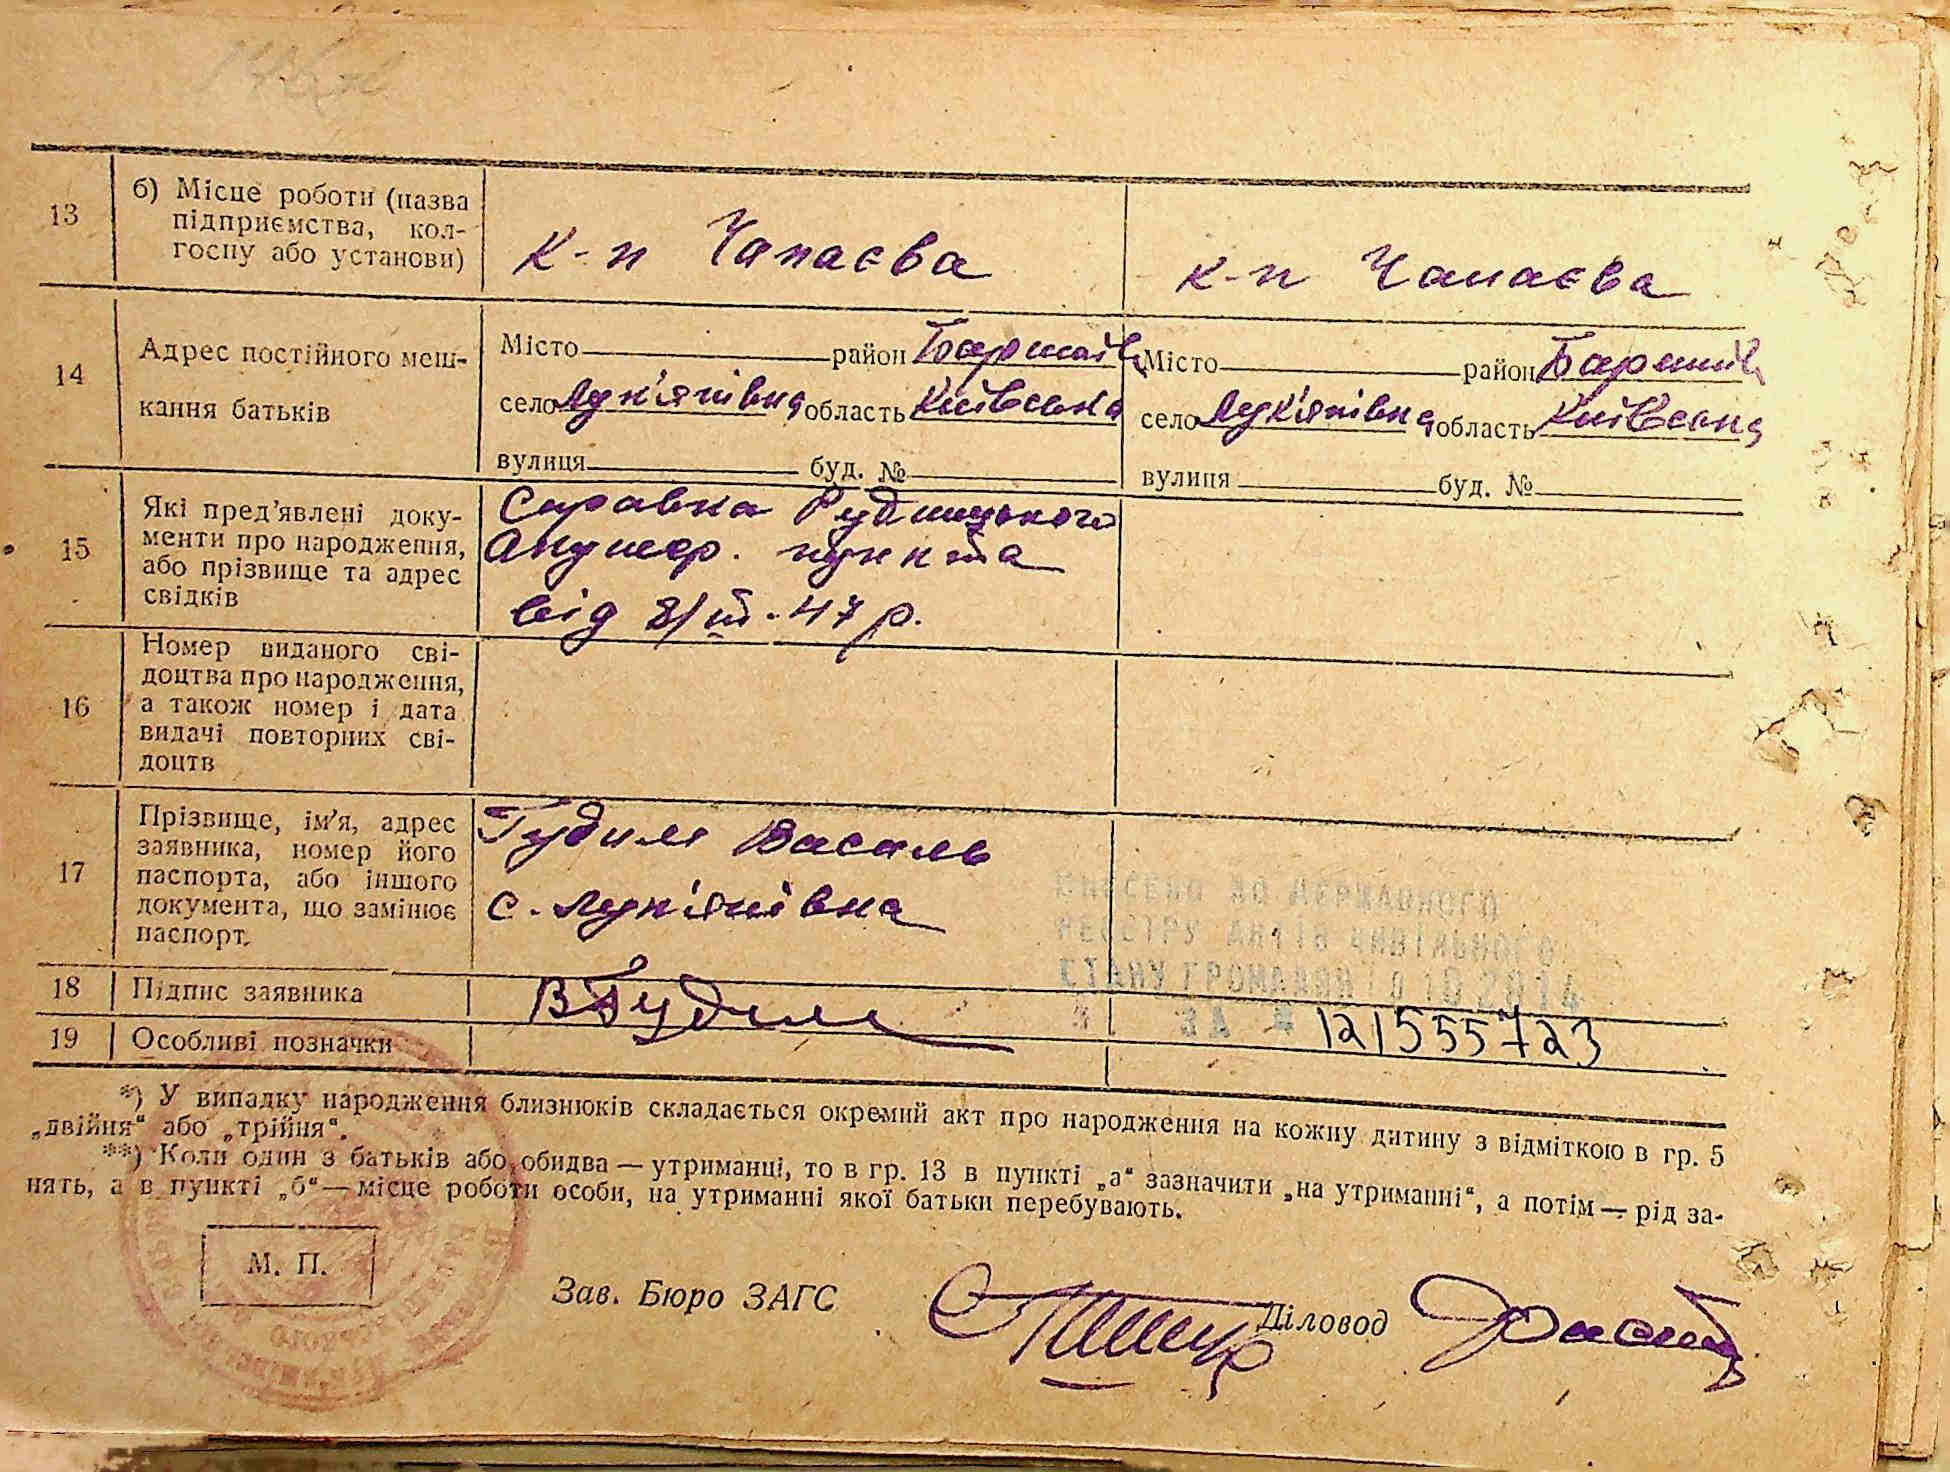 13
б) Місце роботи (назва
підприємства, кол-
госпу або установи)
к-п Чапаєва
к-п Чапаєва
14
Адрес постійного меш-
кання батьків
Місто район Баришів
село Лук'янівка область Київська
вулиця буд. №
Місто район Баришів
село Лук'янівка область Київська
вулиця буд. №
15
Які пред'явлені доку-
менти про народження,
або прізвище та адрес
свідків
Справка Рудницького
Акушер. пункта
від 8/III-47 р.
16
Номер виданого сві-
доцтва про народження,
а також номер і дата
видачі повторних сві-
доцтв
17
Прізвище, ім'я, адрес
заявника, номер його
паспорта, або іншого
документа, що замінює
паспорт.
Гудим Василь
с. Лук'янівка
ВНЕСЕНО ДО ДЕРЖАВНОГО
РЕЄСТРУ АКТІВ ЦИВІЛЬНОГО
СТАНУ ГРОМАДЯН 10 2014
ЗА # 121555723
18
Підпис заявника
ВГудим
19
Особливі позначки
*) У випадку народження близнюків складається окремий акт про народження на кожну дитину з відміткою в гр. 5
„двійня“ або „трійня“.
**) Коли один з батьків або обидва — утриманці, то в гр. 13 в пункті „а“ зазначити „на утриманні“, а потім — рід за-
нять, а в пункті „б“ — місце роботи особи, на утриманні якої батьки перебувають.
М. П.
Зав. Бюро ЗАГС
Діловод